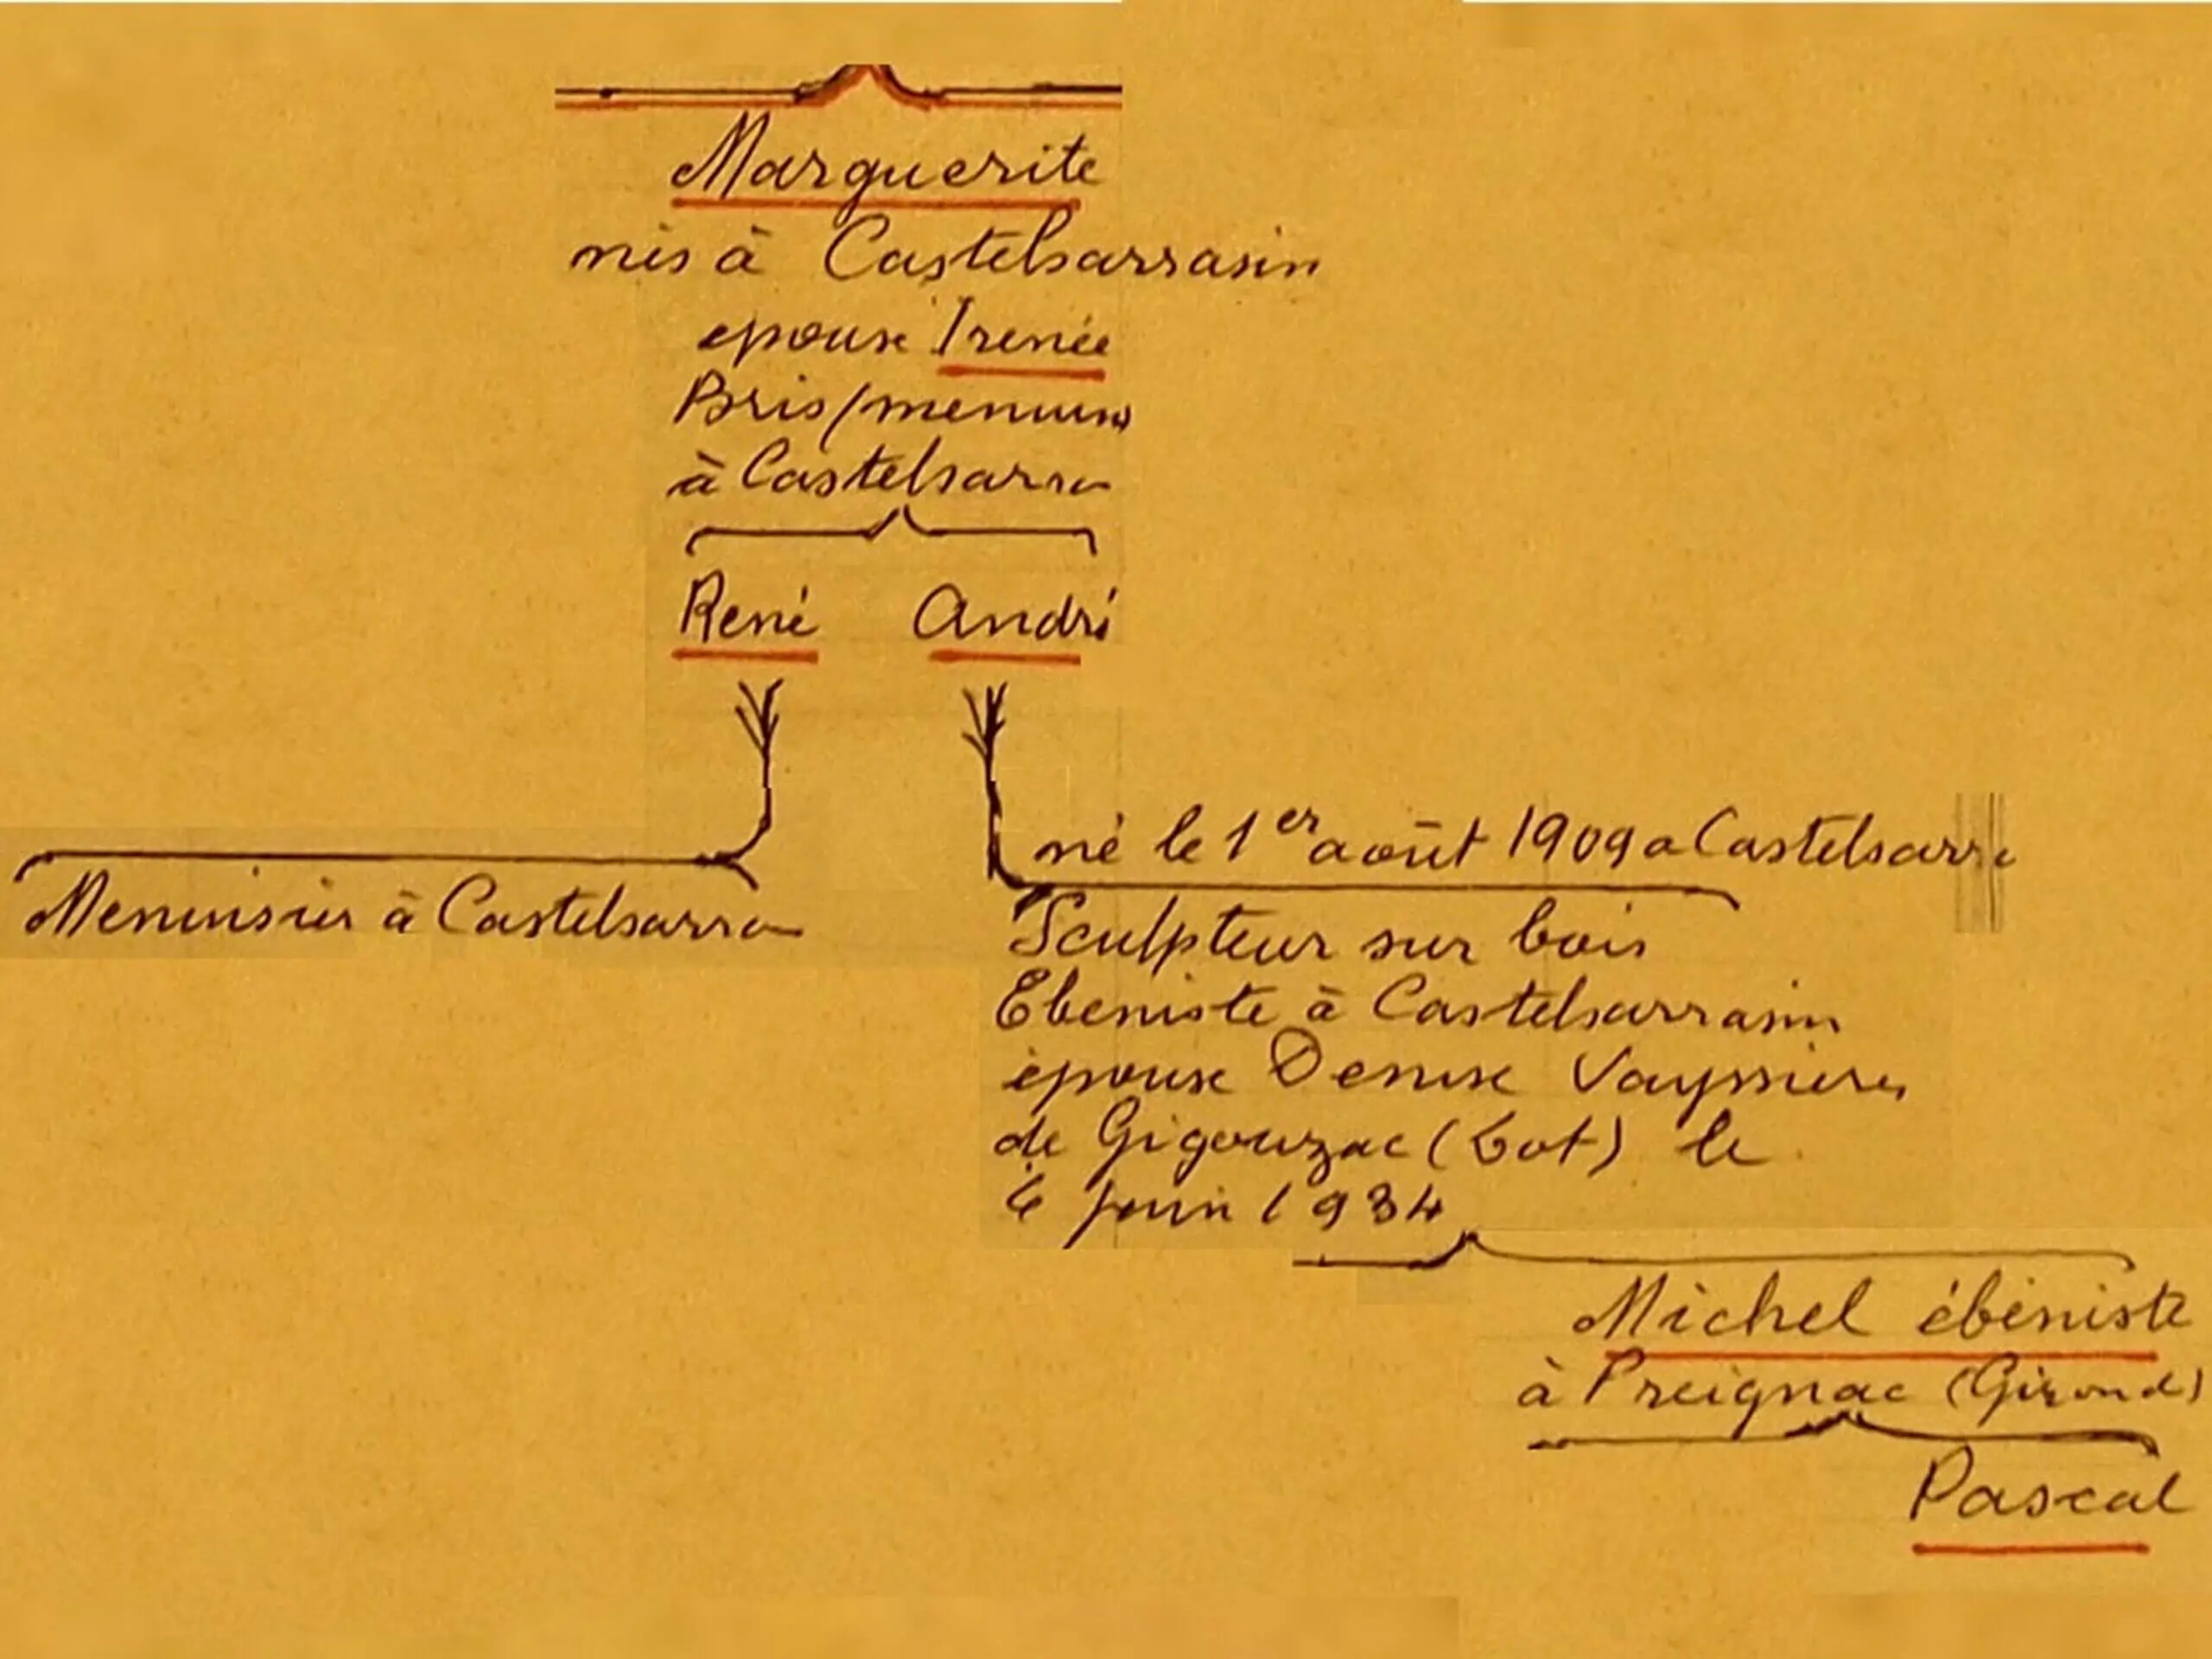 Marguerite
nés à Castelsarrasin
epouse Irenée
Bris/menuis
à Castelsarra
René André
né le 1er août 1909 a Castelsarra
Menuisier à Castelsarra
Sculpteur sur bois
Ebeniste à Castelsarrasin
épouse Denise Vayssieres
de Gigouzac (Lot) le
juin 1934
Michel ébéniste
à Preignac (Girond)
Pascal